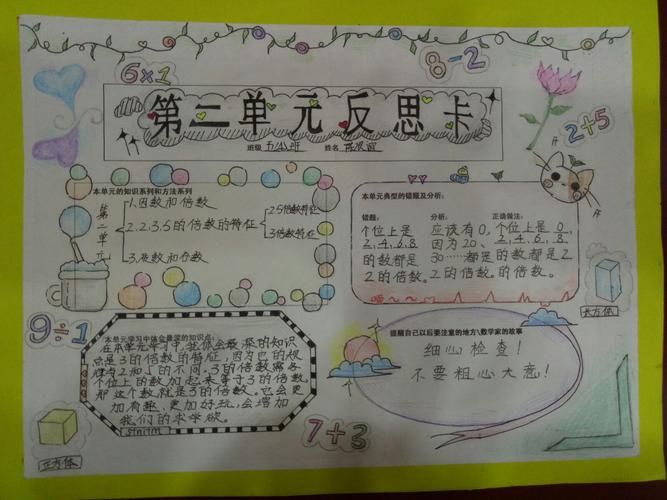 6×1
8-2
第二单元反思卡
2+5
班级 五(2)班 姓名
本单元的知识系列和方法系列
第二单元
1.因数和倍数
2.2、3、5的倍数的特征
2.5倍数特征
3倍数特征
3.质数和合数
本单元典型的错题及分析:
错题: 分析: 正确做法:
个位上是 应该有0, 个位上是 0、
2、4、6、8 因为20、 2、4、6、8
的数都是 30……都是 的数都是2
2的倍数。 2的倍数。 的倍数。
长方体
9÷1
本单元学习中体会最深的知识点:
在本单元学习中,我体会最深的知识
点是3的倍数的特征,因为它的规
律与2和5的不同。3的倍数需各
个位上的数加起来等于3的倍数,
那这个数就是3的倍数。它会更
加有趣、更加好玩,会增加
我们的求学欲。
提醒自己以后要注意的地方\数学家的故事
细心检查!
不要粗心大意!
7+3
正方体